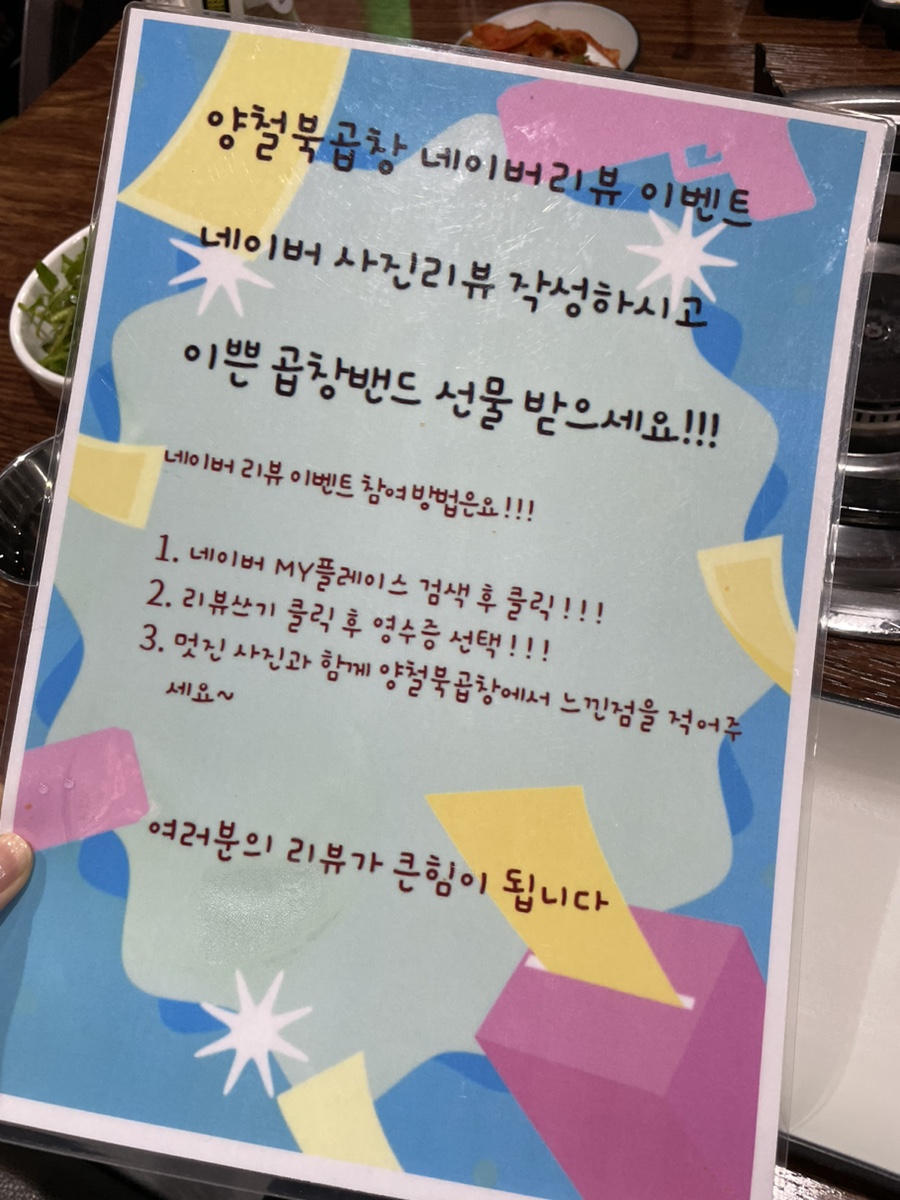 양철북곱창 네이버리뷰 이벤트
네이버 사진리뷰 작성하시고
이쁜 곱창밴드 선물 받으세요!!!
네이버 리뷰 이벤트 참여 방법은요!!!
1. 네이버 MY플레이스 검색 후 클릭!!!
2. 리뷰쓰기 클릭 후 영수증 선택!!!
3. 멋진 사진과 함께 양철북곱창에서 느낀점을 적어주
세요~
여러분의 리뷰가 큰힘이 됩니다